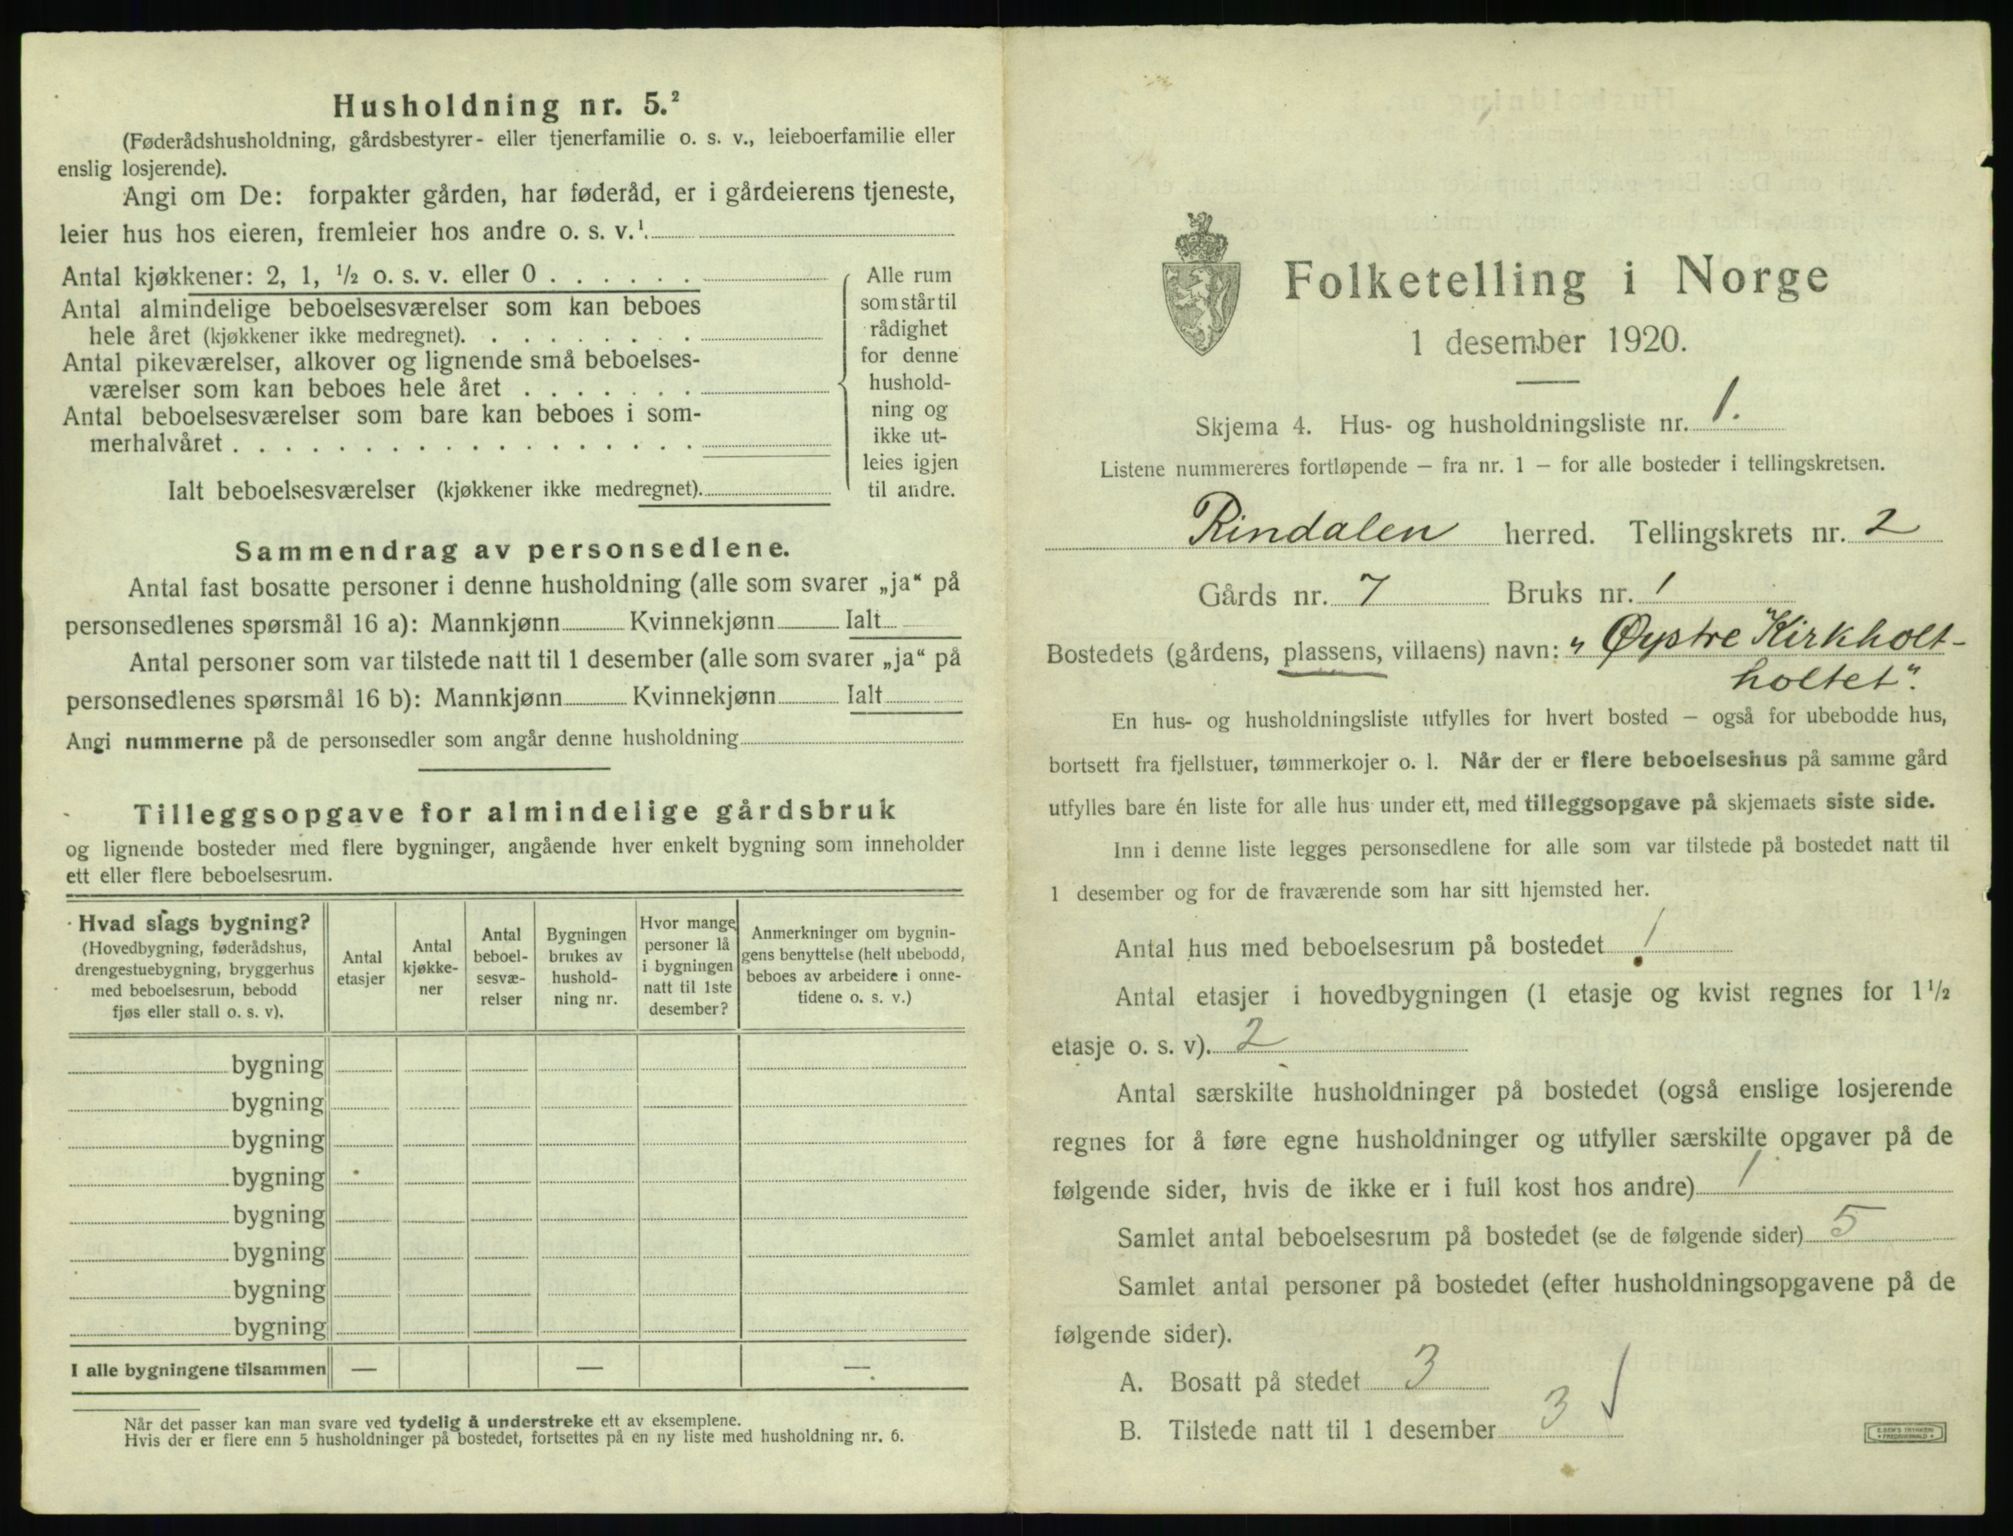 Husholdning nr. 5.²
(Føderådshusholdning, gårdsbestyrer- eller tjenerfamilie o. s. v., leieboerfamilie eller
enslig losjerende).
Angi om De: forpakter gården, har føderåd, er i gårdeierens tjeneste,
leier hus hos eieren, fremleier hos andre o. s. v.¹
Antal kjøkkener: 2, 1, ½ o. s. v. eller 0 . . . . . .
Antal almindelige beboelsesværelser som kan beboes
hele året (kjøkkener ikke medregnet). . . . . . . . .
Antal pikeværelser, alkover og lignende små beboelses-
værelser som kan beboes hele året . . . . . . .
Antal beboelsesværelser som bare kan beboes i som-
merhalvåret . . . . . . . . . . . . . . . . . .
Ialt beboelsesværelser (kjøkkener ikke medregnet).
Alle rum
som står til
rådighet
for denne
hushold-
ning og
ikke ut-
leies igjen
til andre.
Sammendrag av personsedlene.
Antal fast bosatte personer i denne husholdning (alle som svarer „ja“ på
personsedlenes spørsmål 16 a): Mannkjønn Kvinnekjønn Ialt
Antal personer som var tilstede natt til 1 desember (alle som svarer „ja“ på
personsedlenes spørsmål 16 b): Mannkjønn Kvinnekjønn Ialt
Angi nummerne på de personsedler som angår denne husholdning
Tilleggsopgave for almindelige gårdsbruk
og lignende bosteder med flere bygninger, angående hver enkelt bygning som inneholder
ett eller flere beboelsesrum.
Hvad slags bygning?
(Hovedbygning, føderådshus,
drengestuebygning, bryggerhus
med beboelsesrum, bebodd
fjøs eller stall o. s. v).
Antal
etasjer
Antal
kjøkke-
ner
Antal
beboel-
sesvæ-
relser
Bygningen
brukes av
hushold-
ning nr.
Hvor mange
personer lå
i bygningen
natt til 1ste
desember?
Anmerkninger om bygnin-
gens benyttelse (helt ubebodd,
beboes av arbeidere i onne-
tidene o. s. v.)
bygning
bygning
bygning
bygning
bygning
bygning
bygning
bygning
I alle bygningene tilsammen — — —
Når det passer kan man svare ved tydelig å understreke ett av eksemplene.
Hvis der er flere enn 5 husholdninger på bostedet, fortsettes på en ny liste med husholdning nr. 6.
Folketelling i Norge
1 desember 1920.
Skjema 4. Hus- og husholdningsliste nr. 1.
Listene nummereres fortløpende – fra nr. 1 – for alle bosteder i tellingskretsen.
Rindalen herred. Tellingskrets nr. 2
Gårds nr. 7 Bruks nr. 1
Bostedets (gårdens, plassens, villaens) navn: „Øystre Kirkholt-
holtet“.
En hus- og husholdningsliste utfylles for hvert bosted – også for ubebodde hus,
bortsett fra fjellstuer, tømmerkojer o. l. Når der er flere beboelseshus på samme gård
utfylles bare én liste for alle hus under ett, med tilleggsopgave på skjemaets siste side.
Inn i denne liste legges personsedlene for alle som var tilstede på bostedet natt til
1 desember og for de fraværende som har sitt hjemsted her.
Antal hus med beboelsesrum på bostedet 1
Antal etasjer i hovedbygningen (1 etasje og kvist regnes for 1½
etasje o. s. v). 2
Antal særskilte husholdninger på bostedet (også enslige losjerende
regnes for å føre egne husholdninger og utfyller særskilte opgaver på de
følgende sider, hvis de ikke er i full kost hos andre) 1
Samlet antal beboelsesrum på bostedet (se de følgende sider) 5
Samlet antal personer på bostedet (efter husholdningsopgavene på de
følgende sider).
A. Bosatt på stedet 3
B. Tilstede natt til 1 desember 3